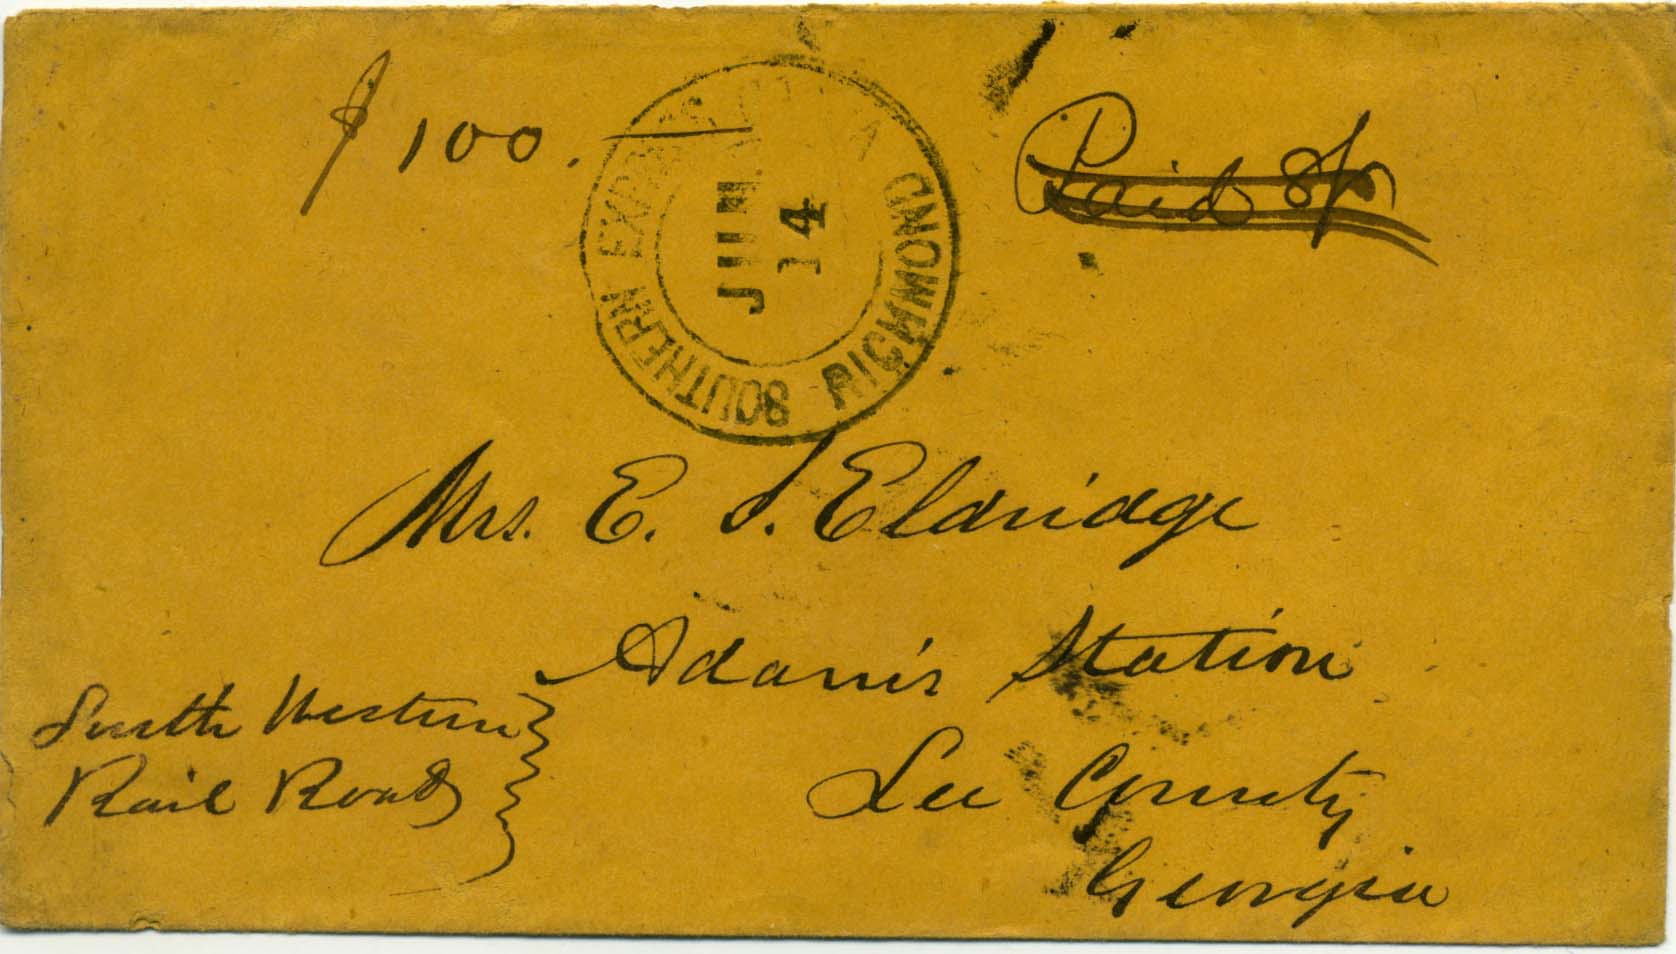 $ 100.
SOUTHERN EXPRESS
RICHMOND
JUN
14
Paid
Mrs. E. S. Eldridge
Adam's Station
Lee County
Georgia
South Western
Rail Road